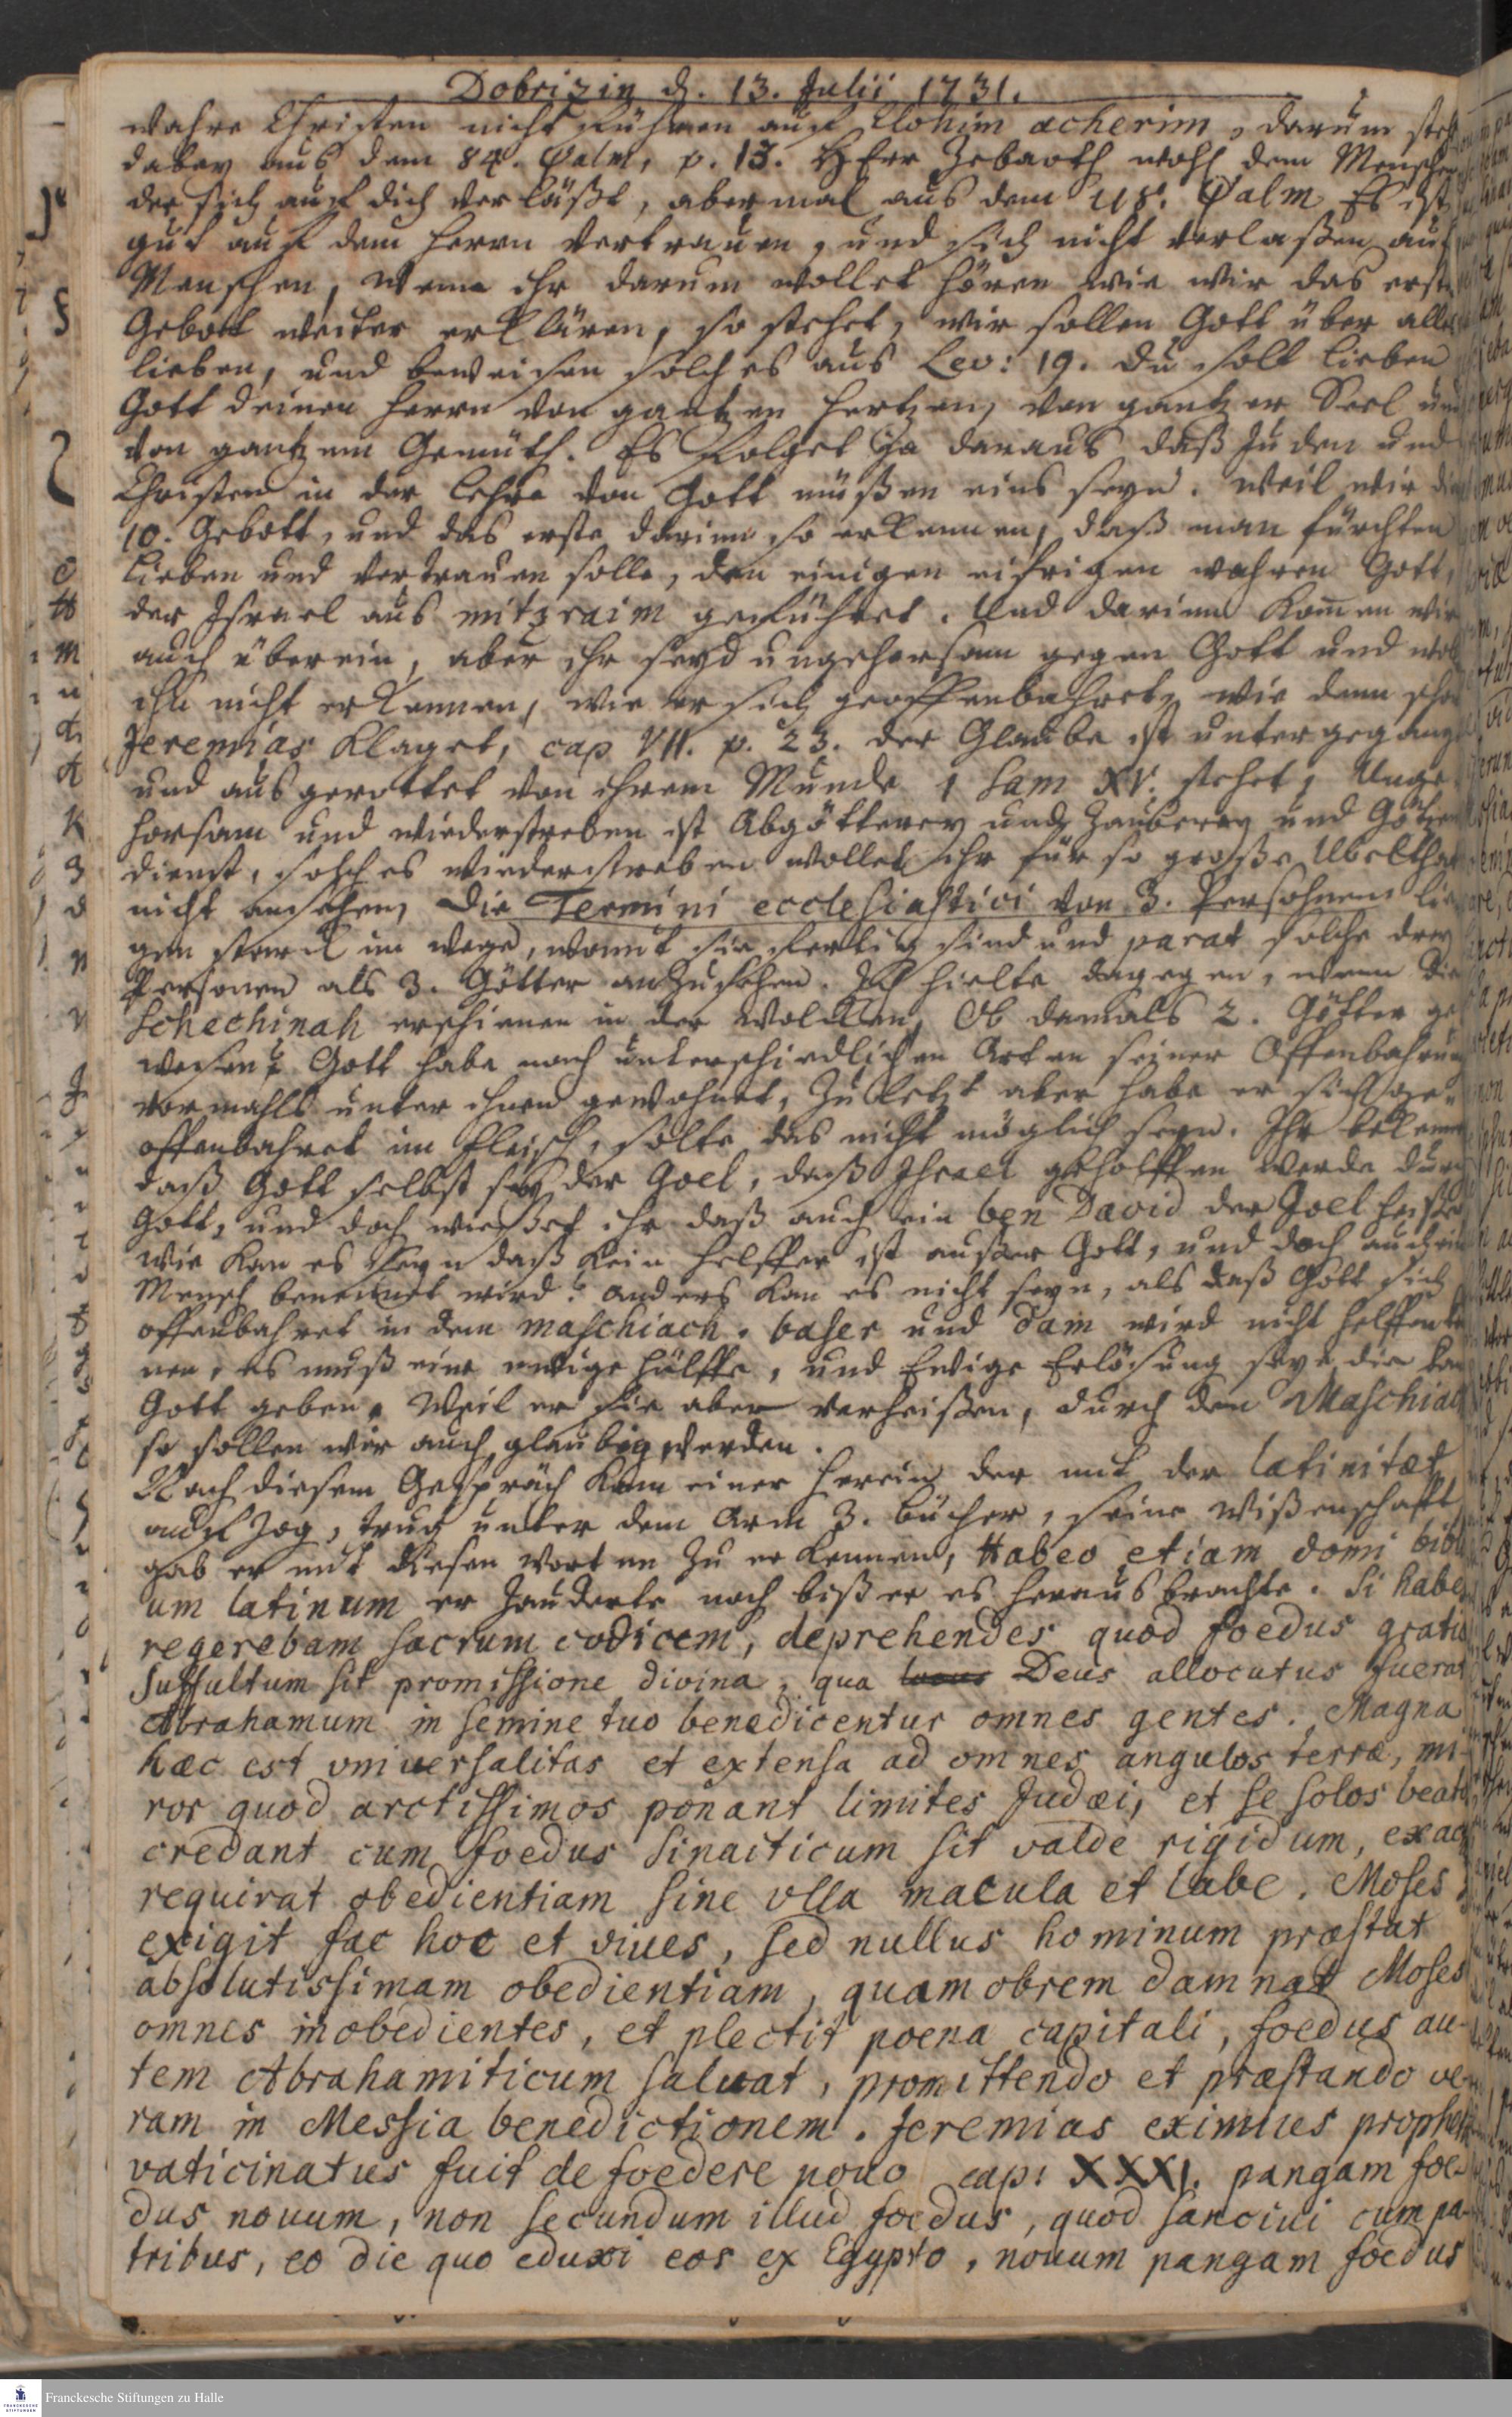 Dobrizin d. 13. Julii 1731.
wahre Christen nicht rühmen auch Elohim acherim, darum steh
dabey aus dem 84. Psalm, v. 13. HErr Zebaoth wohl dem Menschen
der sich auf dich verläßt, abermal aus dem 118. Psalm Es ist
gut auf dem Herrn vertrauen, und sich nicht verlaßen auf
Menschen, Wenn ihr darum wollet hören wie wir das erste
Gebott weiter erklären, so stehet, wir sollen Gott über alles
lieben, und beweisen solches aus Lev: 19. du solt lieben
Gott deinen Herrn von gantzen Hertzen, von gantzer Seel und
von gantzem Gemüth. Es folget ja daraus daß Juden und
Christen in der Lehre von Gott müßen eins seyn. Weil wir die
10. Gebott, und das erste darinn so erkennen, daß man fürchten
lieben und vertrauen solle, den einigen eifrigen wahren Gott,
der Israel aus mitzraim geführet. Und darinn komen wir
auch überein, aber ihr seyd ungehorsam gegen Gott und wol
ihn nicht erkennen, wie er sich geoffenbahret, wie denn schon
Jeremias klaget, cap VII. v. 23. der Glaube ist untergegange
und ausgerottet von ihrem Munde 1 Sam XV. stehet, Unge-
horsam und wiederstreben ist Abgötterey und Zauberey und Götzen
dienst, solches wiederstreben wollet ihr für so große Ubelthat
nicht ansehen, Die Termini ecclesiastici von 3. Persohnen lie-
gen starck im wege, womit sie fertig sind und parat solche drey
Personen als 3. Götter anzusehen. Ich hielte dagegen, wenn die
Schechinah erschienen in der Wolcken, Ob damals 2. Götter ge-
wesen? Gott habe nach unterschiedlichen Arten seiner Offenbahrung
vormahls unter ihnen gewohnet, Zu letzt aber habe er sich ge-
offenbahret im Fleisch, solte das nicht möglich seyn. Ihr bekenne
daß Gott selbst sey der Goel, daß Israel geholffen werde durch
Gott, und doch wießet ihr daß auch ein ben David der Goel heiße
wie kan es seyn daß kein Helffer ist außer Gott, und doch auch ein
Mensch benennet wird? anders kan es nicht seyn, als daß Gott sich
offenbahret in dem maschiach. baser und dam wird nicht helffen kö
nen, es muß eine ewige hülffe, und Ewige Erlösung seyn die kan
Gott geben. Weil er sie aber verheißen, durch den Maschiach
so sollen wir auch glaubig werden.
Nach diesem Gespräch kam einer herein der mit der latinitæt
auff zog, trug unter dem Arm 3. bücher, seine Wißenschafft
gab er mit diesen Worten zu erkennen, Habeo etiam domi bibli
um latinum er zauderte noch biß er es heraus brachte. Si habes
regerebam sacrum codicem, deprehendes quod foedus gratiæ
suffultum sit promissione divina, qua Deus allocutus fuerat
Abrahamum in semine tuo benedicentur omnes gentes. Magna
hæc est vniuersalitas et extensa ad omnes angulos terræ, mi-
ror quod arctissimos ponant limites Judæi, et se solos beatos
credant cum foedus Sinaiticum sit valde rigidum, exac
requirat obedientiam sine vlla macula et labe. Moses
exigit fac hoc et viues, sed nullus hominum præstat
absolutissimam obedientiam, quamobrem damnat Moses
omnes inobedientes, et plectit poena capitali, foedus au-
tem Abrahamiticum saluat, promittendo et præstando ve-
ram in Messia benedictionem. Jeremias eximius prophet
vaticinatus fuit de foedere nouo cap: XXXI. pangam foe-
dus nouum, non secundum illud foedus, quod sanciui cum pa-
tribus, eo die quo eduxi eos ex Egypto, nouum pangam foedus
Franckesche Stiftungen zu Halle